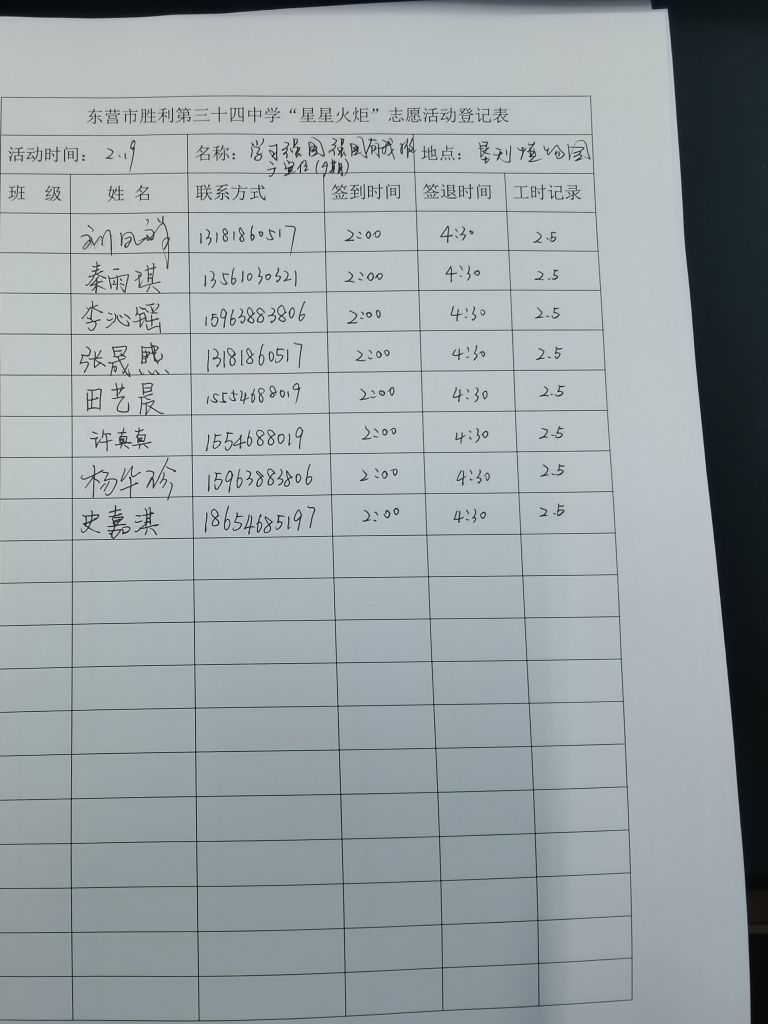 东营市胜利第三十四中学“星星火炬”志愿活动登记表
活动时间：2.19 名称：学习强国 强国有我 地点：垦利植物园
宣传(9期)
班 级 姓 名 联系方式 签到时间 签退时间 工时记录
刘 13181860517 2:00 4:30 2.5
秦雨琪 13561030321 2:00 4:30 2.5
李沁镅 15963883806 2:00 4:30 2.5
张晟熙 13181860517 2:00 4:30 2.5
田艺晨 15554688019 2:00 4:30 2.5
许真真 1554688019 2:00 4:30 2.5
杨华珍 15963883806 2:00 4:30 2.5
史嘉淇 18654685197 2:00 4:30 2.5